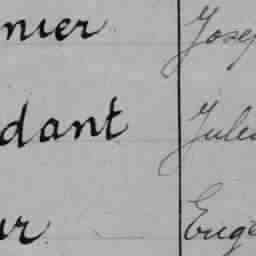 nier Josep
dant Jule
ur Euge